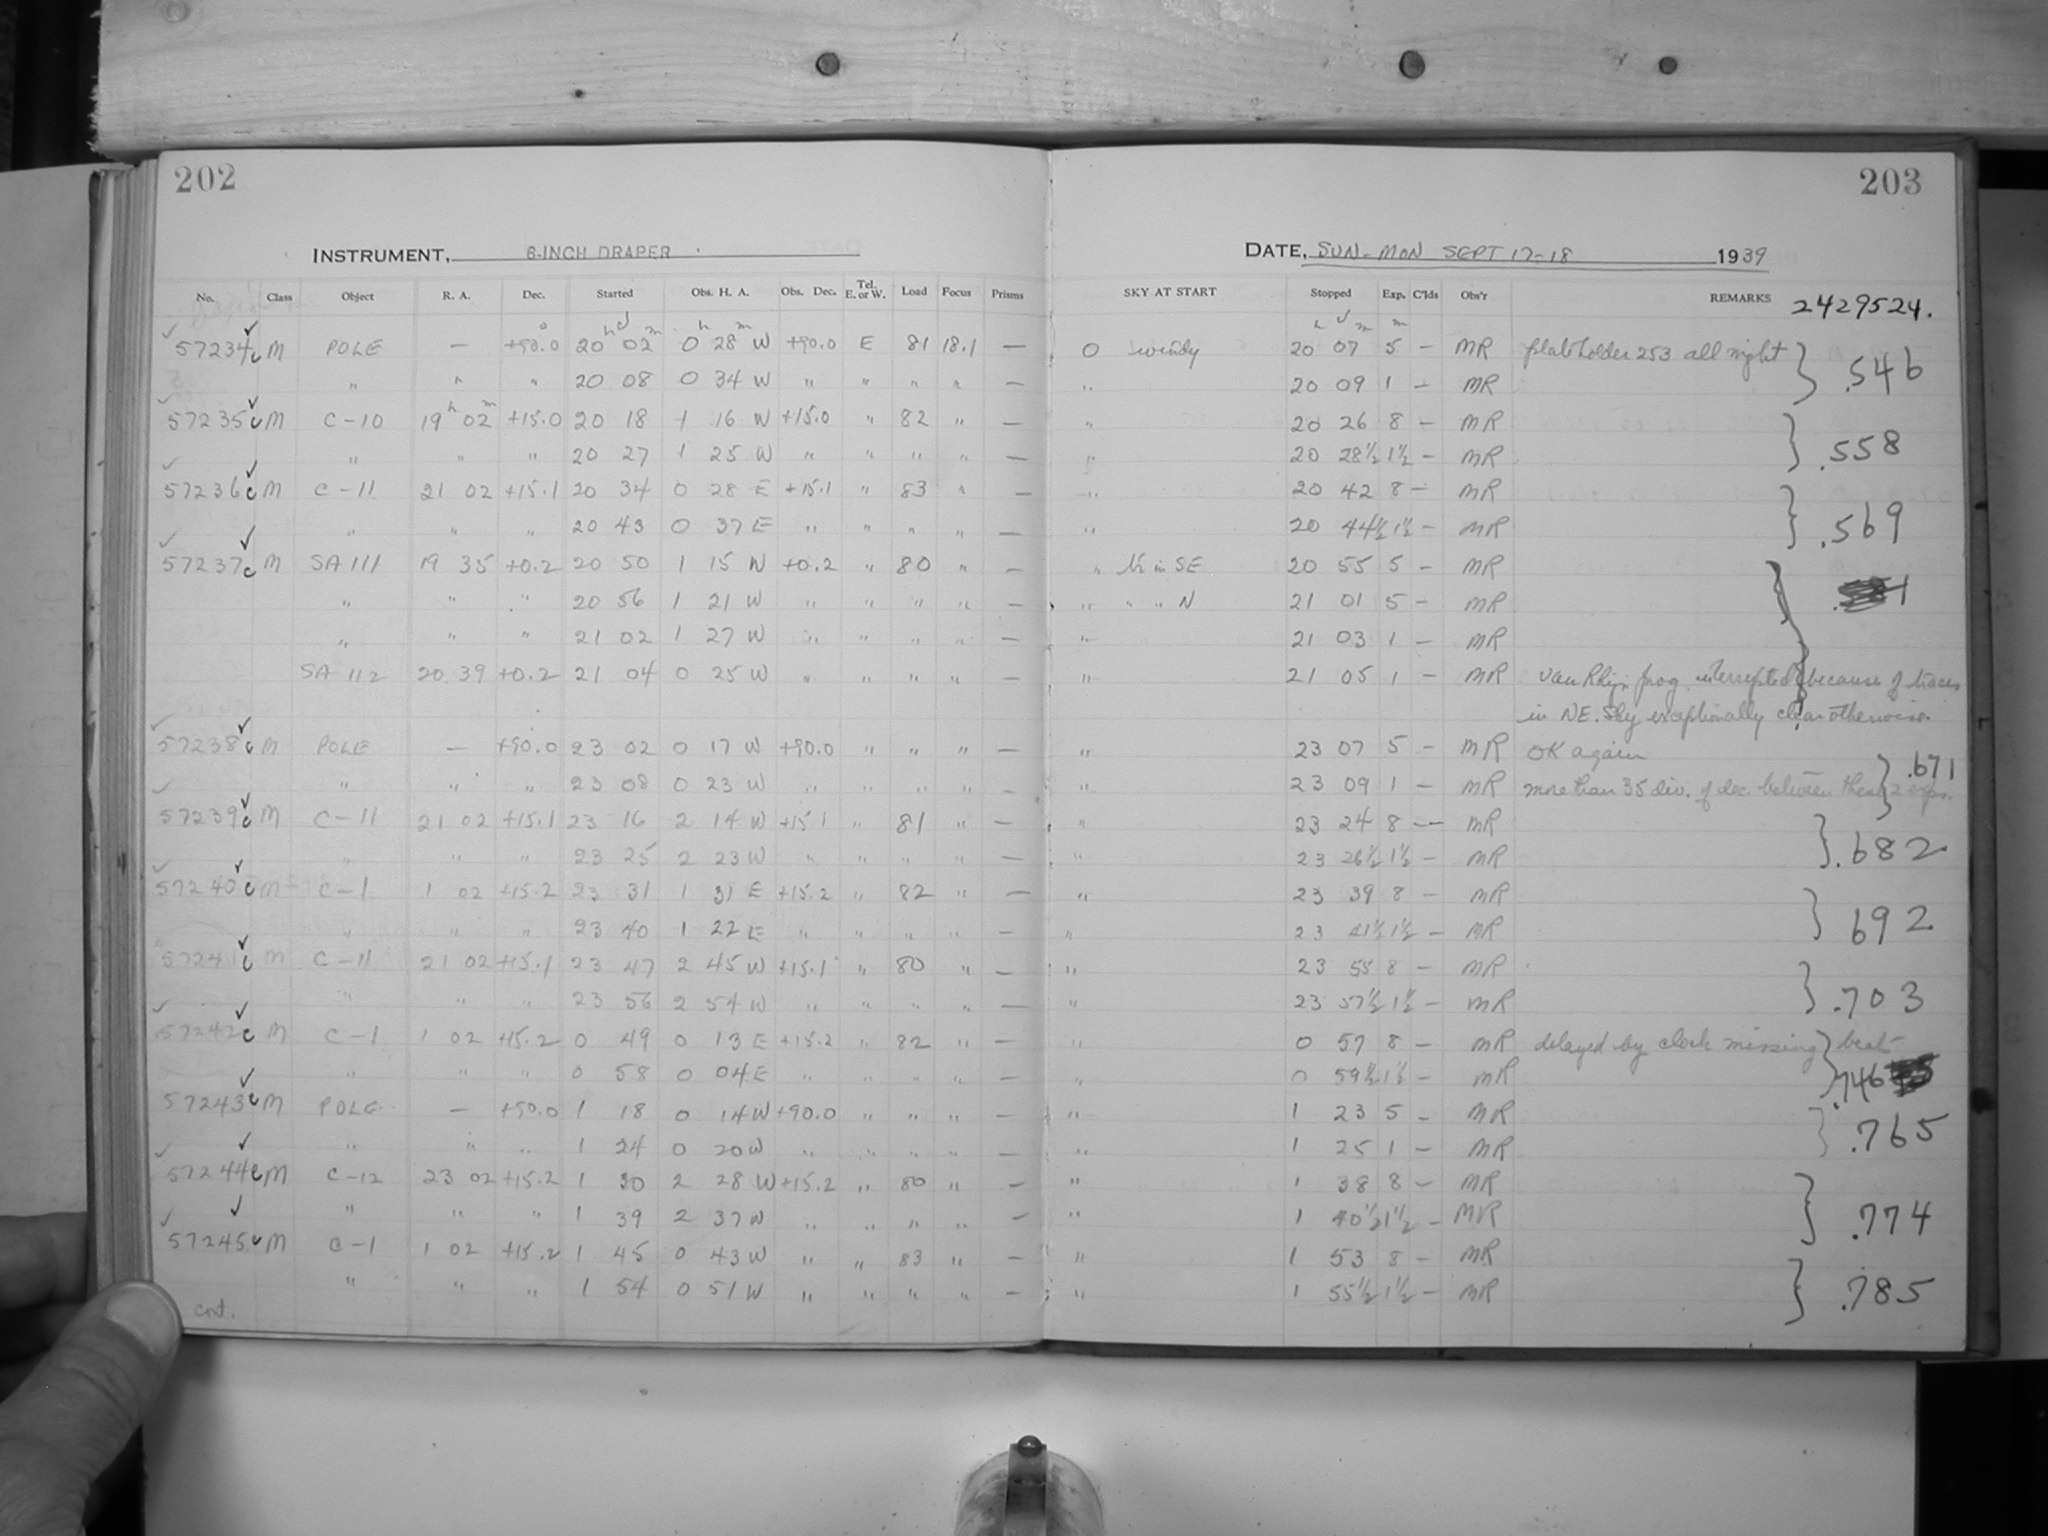 202
INSTRUMENT, 8-INCH DRAPER
No. Class Object R. A. Dec. Started Obs. H. A. Obs. Dec. Tel. E. or W. Load Focus Prisms
57234 c M POLE — +90.0 20 02 0 28 W +90.0 E 81 18.1 —
" " " 20 08 0 34 W " " " " —
57235 c M C-10 19 02 +15.0 20 18 1 16 W +15.0 " 82 " —
" " " 20 27 1 25 W " " " " —
57236 c M C-11 21 02 +15.1 20 34 0 28 E +15.1 " 83 " —
" " " 20 43 0 37 E " " " " —
57237 c M SA 111 19 35 +0.2 20 50 1 15 W +0.2 " 80 " —
" " " 20 56 1 21 W " " " " —
" " " 21 02 1 27 W " " " " —
SA 112 20 39 +0.2 21 04 0 25 W " " " " —
57238 c M POLE — +90.0 23 02 0 17 W +90.0 " " " —
" " " 23 08 0 23 W " " " " —
57239 c M C-11 21 02 +15.1 23 16 2 14 W +15.1 " 81 " —
" " " 23 25 2 23 W " " " " —
57240 c M C-1 1 02 +15.2 23 31 1 31 E +15.2 " 82 " —
" " " 23 40 1 22 E " " " " —
57241 c M C-11 21 02 +15.1 23 47 2 45 W +15.1 " 80 " —
" " " 23 56 2 54 W " " " " —
57242 c M C-1 1 02 +15.2 0 49 0 13 E +15.2 " 82 " —
" " " 0 58 0 04 E " " " " —
57243 c M POLE — +90.0 1 18 0 14 W +90.0 " " " —
" " " 1 24 0 20 W " " " " —
57244 c M C-12 23 02 +15.2 1 30 2 28 W +15.2 " 80 " —
" " " 1 39 2 37 W " " " " —
57245 c M C-1 1 02 +15.2 1 45 0 43 W " " 83 " —
" " " 1 54 0 51 W " " " " —
cont.
203
DATE, SUN-MON SEPT 17-18 1939
SKY AT START Stopped Exp. C'lds Obs'r REMARKS 2429524.
0 windy 20 07 5 — MR plateholder 253 all night
" 20 09 1 — MR .546
" 20 26 8 — MR
" 20 28½ 1½ — MR .558
" 20 42 8 — MR
" 20 44½ 1½ — MR .569
" in SE 20 55 5 — MR
" " " N 21 01 5 — MR
" 21 03 1 — MR
" 21 05 1 — MR van Rhijn prog. interrupted because of traces
in NE. Sky exceptionally clear otherwise.
" 23 07 5 — MR OK again .671
" 23 09 1 — MR more than 35 div. of dec. between these 2 exps.
" 23 24 8 — MR
" 23 26½ 1½ — MR .682
" 23 39 8 — MR
" 23 41½ 1½ — MR 692
" 23 55 8 — MR
" 23 57½ 1½ — MR .703
" 0 57 8 — MR delayed by clock missing beat
" 0 59½ 1½ — MR .746
" 1 23 5 — MR
" 1 25 1 — MR .765
" 1 38 8 — MR
" 1 40½ 1½ — MR .774
" 1 53 8 — MR
" 1 55½ 1½ — MR .785